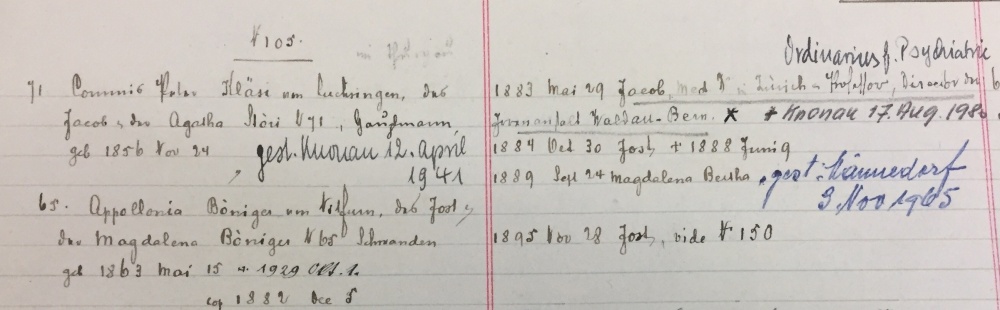 N 105.
71 Commis Peter Kläsi von Luchsingen, des
Jacob & der Agatha Störi N 71, Hauptmann,
geb 1856 Nov 24 gest. Knonau 12. April
1941
65. Appollonia Böniger von Nitfurn, des Jost &
der Magdalena Böniger N 65 Schwanden
geb 1863 Mai 15 + 1929 Okt. 1.
cop 1882 Dec 5
Ordinarius f. Psychiatrie
1883 Mai 29 Jacob, med Dr in Zürich & Professor, Director der
Irrenanstalt Waldau-Bern. x + Knonau 17. Aug. 1980
1884 Oct 30 Jost, + 1888 Juni 9
1889 Sept 24 Magdalena Bertha, gest. Männedorf
3. Nov 1965
1895 Nov 28 Jost, vide N 150